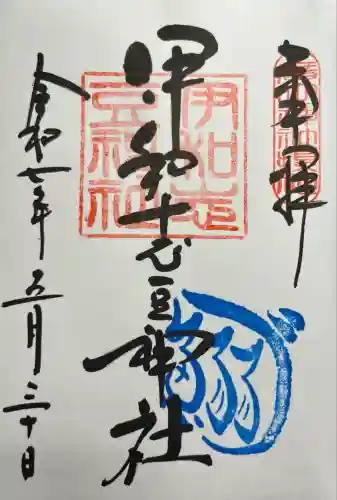 奉拝
伊和志豆神社
伊和志
豆神社
鰯
令和七年五月三十日